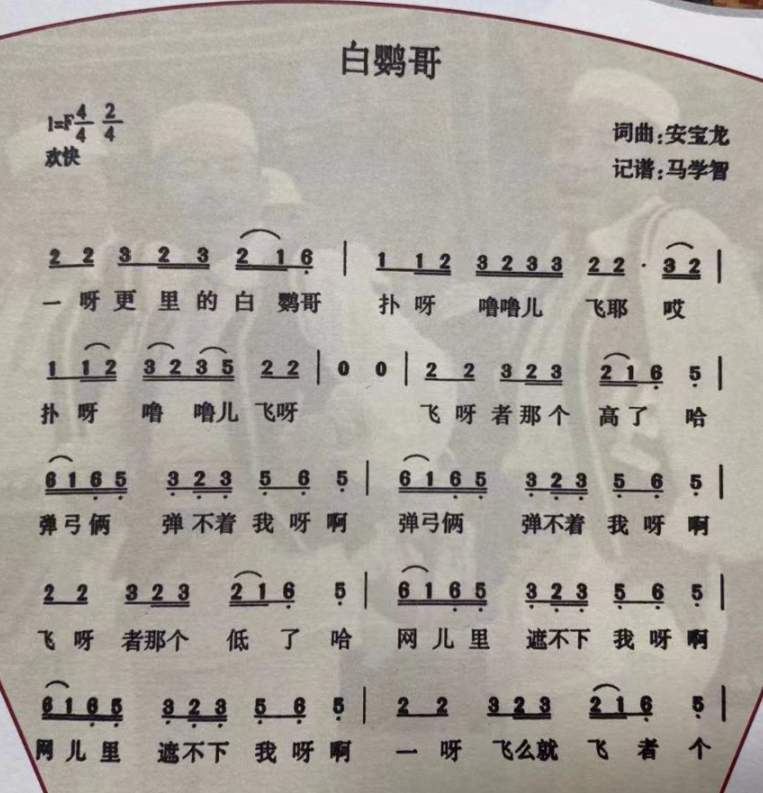 白鹦哥
1=F 4/4 2/4
词曲:安宝龙
欢快
记谱:马学智
2 2 3 2 3 2 1 6 | 1 1 2 3 2 3 3 2 2 · 3 2 |
一 呀 更 里 的 白 鹦哥 扑 呀 噜噜儿 飞耶 哎
1 1 2 3 2 3 5 2 2 | 0 0 | 2 2 3 2 3 2 1 6 5 |
扑 呀 噜 噜儿 飞呀 飞 呀 者 那 个 高 了 哈
6 1 6 5 3 2 3 5 6 5 | 6 1 6 5 3 2 3 5 6 5 |
弹 弓 俩 弹 不 着 我 呀 啊 弹弓俩 弹不着 我 呀 啊
2 2 3 2 3 2 1 6 5 | 6 1 6 5 3 2 3 5 6 5 |
飞 呀 者那个 低 了 哈 网 儿 里 遮不下 我 呀 啊
6 1 6 5 3 2 3 5 6 5 | 2 2 3 2 3 2 1 6 5 |
网 儿 里 遮不下 我 呀 啊 一 呀 飞么就 飞 者 个